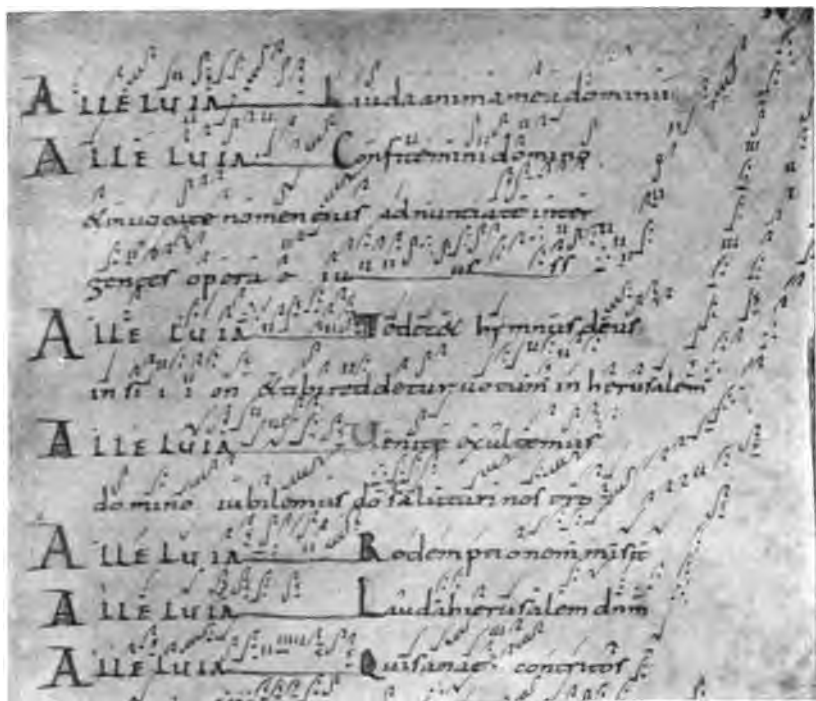 ALLELUIA Lauda anima mea dominu
ALLELUIA Confitemini domino
& inuocate nomen eius adnunciate inter
gentes opera e iu us
ALLELUIA Te dec& hymnus deus
in si i i on & tibi reddetur uotum in herusalem
ALLELUIA Uenite exultemus
domino iubilemus do salutari nostro
ALLELUIA Redemptionem misit
ALLELUIA Lauda hierusalem dnm
ALLELUIA Qui sanat contritos